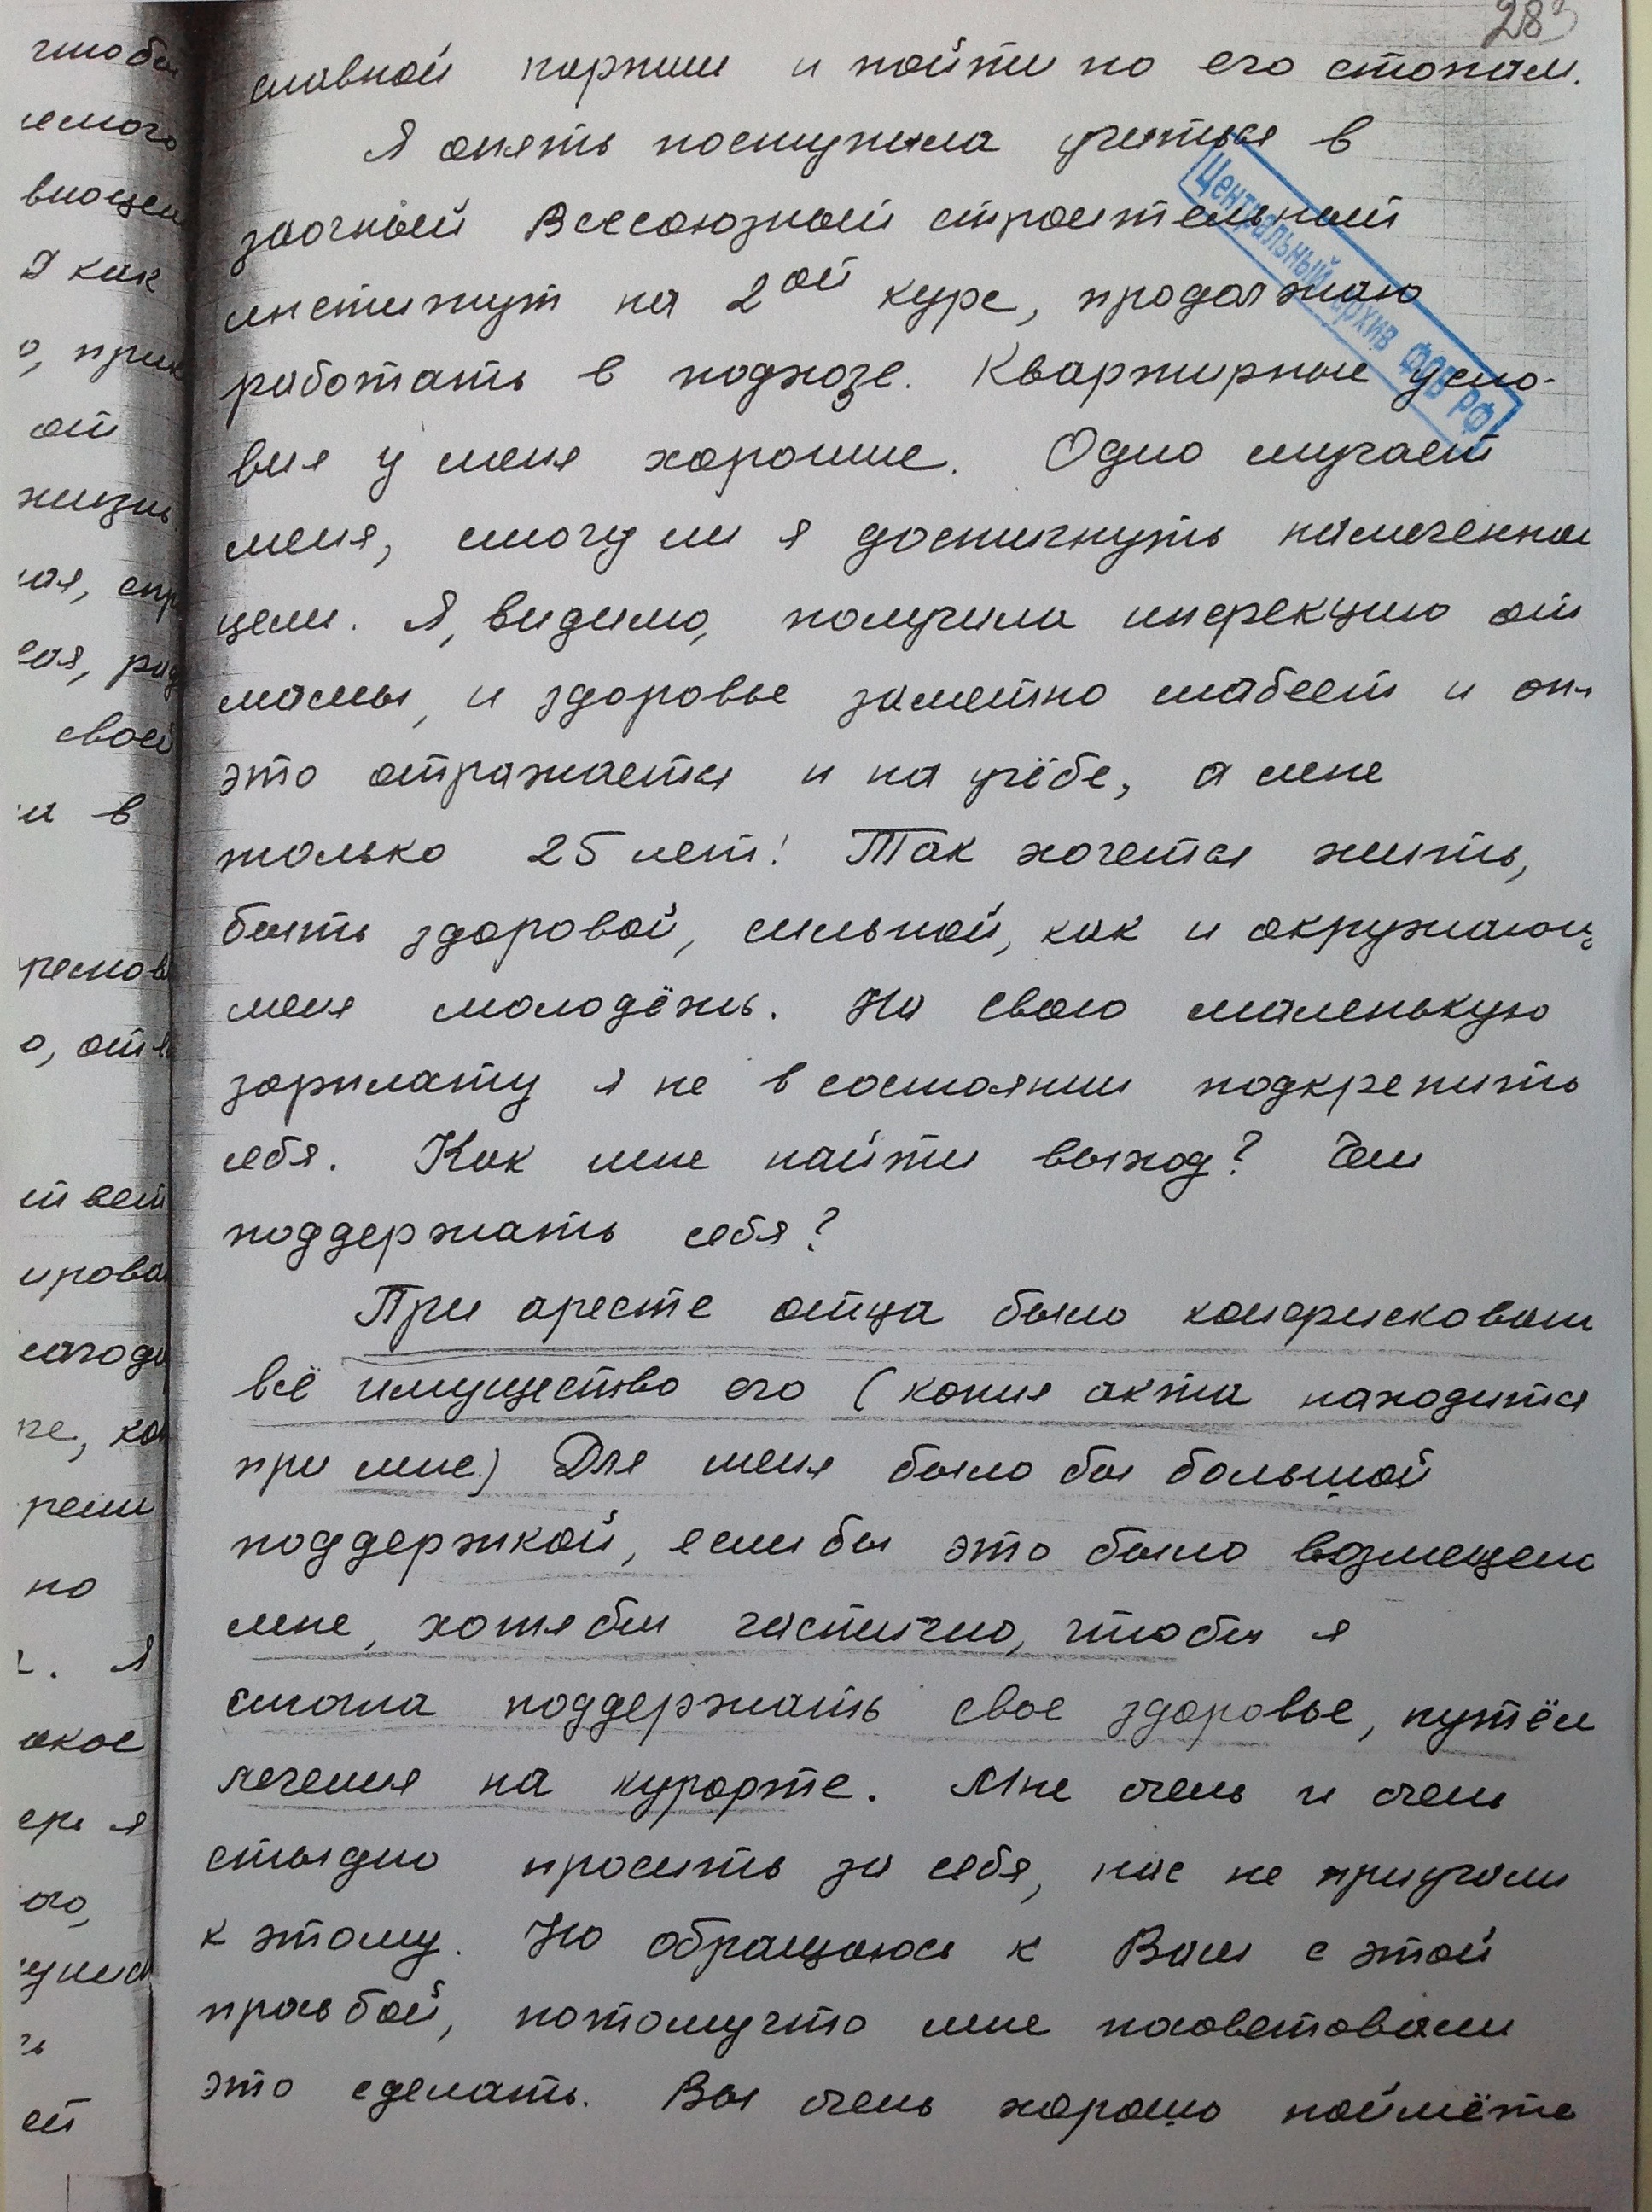 283
славной партии и пойти по его стопам.
Я опять поступила учиться в
заочный Всесоюзный строительный
институт на 2ой курс, продолжаю
работать в подхозе. Квартирные усло-
вия у меня хорошие. Одно мучает
меня, смогу ли я достигнуть намеченной
цели. Я, видимо, получила инфекцию от
мамы, и здоровье заметно слабеет и
это отражается и на учёбе, а мне
только 25 лет! Так хочется жить,
быть здоровой, сильной, как и окружающ
меня молодёжь. На свою маленькую
зарплату я не в состоянии подкрепить
себя. Как мне найти выход? Чем
поддержать себя?
При аресте отца было конфисковано
всё имущество его (копия акта находится
при мне.) Для меня было бы большой
поддержкой, если бы это было возмещено
мне, хотя бы частично, чтобы я
смогла поддержать свое здоровье, путём
лечения на курорте. Мне очень и очень
стыдно просить за себя, нас не приучали
к этому. Но обращаюсь к Вам с этой
просьбой, потому что мне посоветовали
это сделать. Вы очень хорошо поймёте
Центральный архив ФСБ РФ
чтобы
емого
Я как
от
жизнь
своей
и в
но
Я
ого,